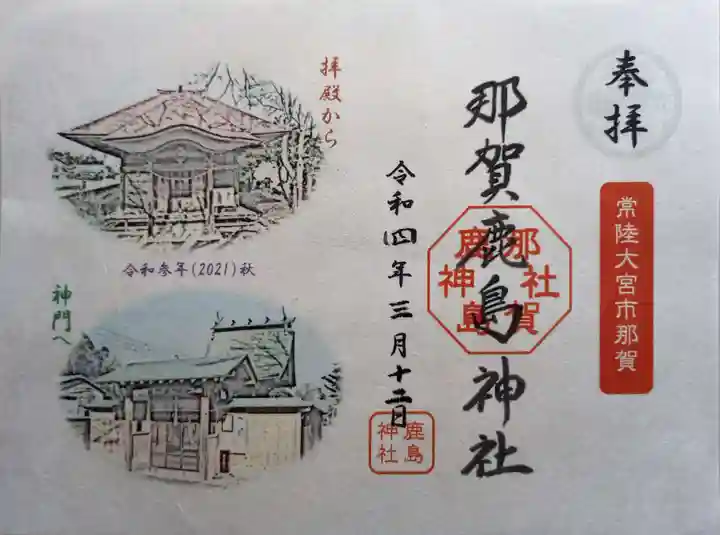 奉拝
常陸大宮市那賀
那賀鹿島神社
那賀
鹿島
神社
令和四年三月十二日
鹿島
神社
拝殿から
令和参年(2021)秋
神門へ